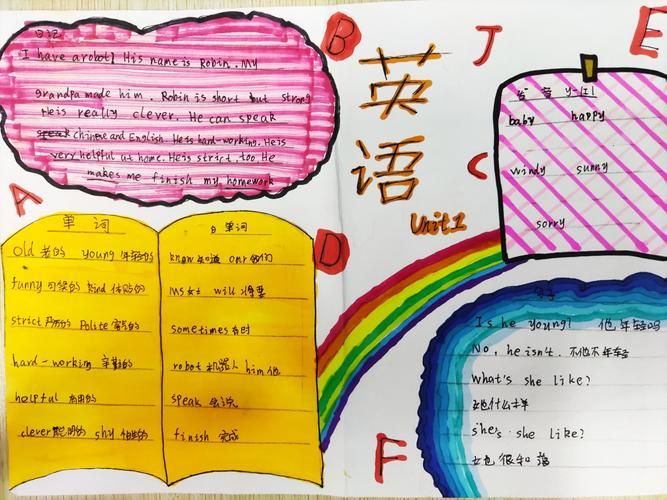 日记
I have a robot! His name is Robin. My
grandpa made him. Robin is short but strong
He is really clever. He can speak
chinese and English. He is hard-working. He is
very helpful at home. He is strict, too He
makes me finish my homework
A
B
英
语
Unit 1
J
C
E
D
F
单词
old 老的 young 年轻的
funny 可笑的 kind 体贴的
strict 严厉的 Polite 客气的
hard-working 辛勤的
helpful 有用的
clever 聪明的 shy 怕生的
单词
know 知道 our 我们
Ms 女士 will 将要
sometimes 有时
robot 机器人 him 他
speak 会说
finish 完成
音 y-[i]
baby happy
windy sunny
sorry
句子
Is he young? 他年轻吗
No, he isn't. 不他不年轻
What's she like?
她什么样
she's she like?
她很和蔼